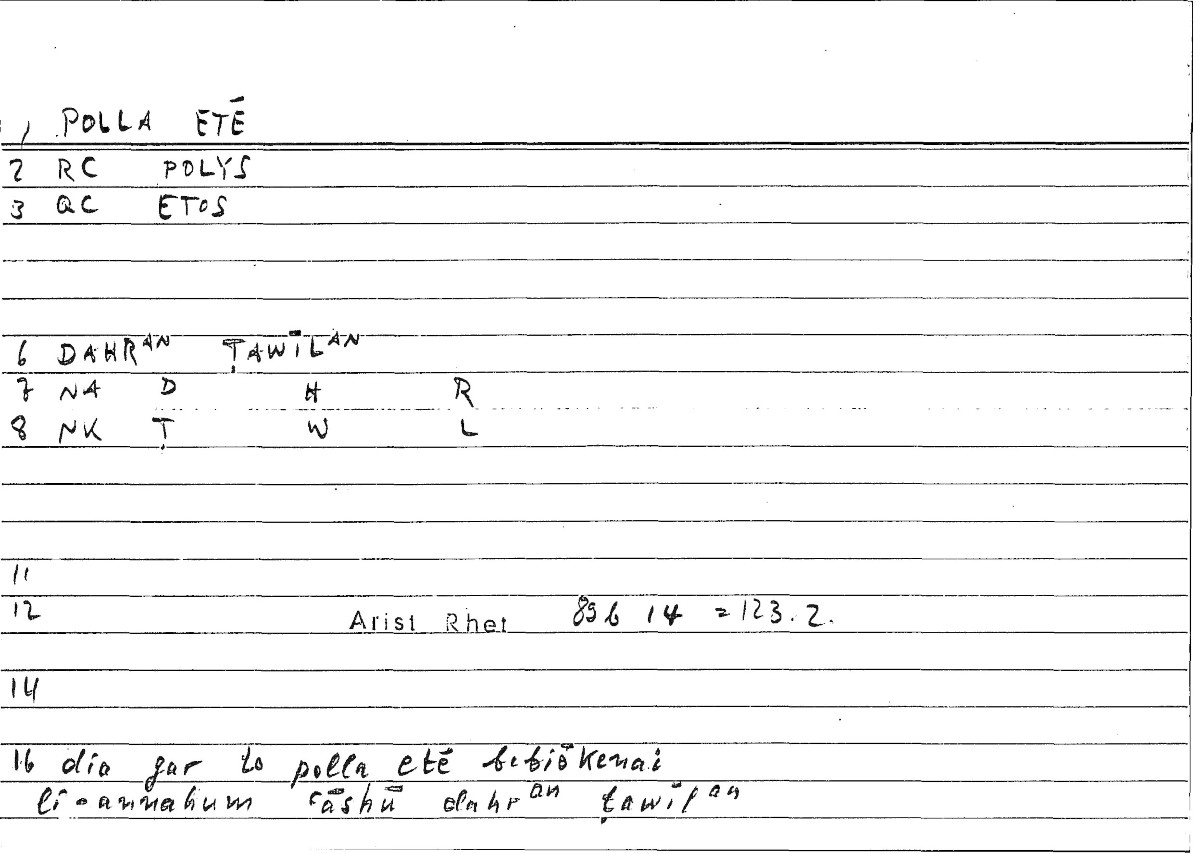 1 POLLA ETĒ
2 RC POLYS
3 QC ETOS
6 DAHRᴬᴺ ṬAWĪLᴬᴺ
7 NA D H R
8 NK Ṭ W L
11
12 Arist Rhet 89b 14 = 123.2.
14
16 dia gar to polla etē bebiōkenai
li-annahum ʿāshū dahrᵃⁿ ṭawīlᵃⁿ